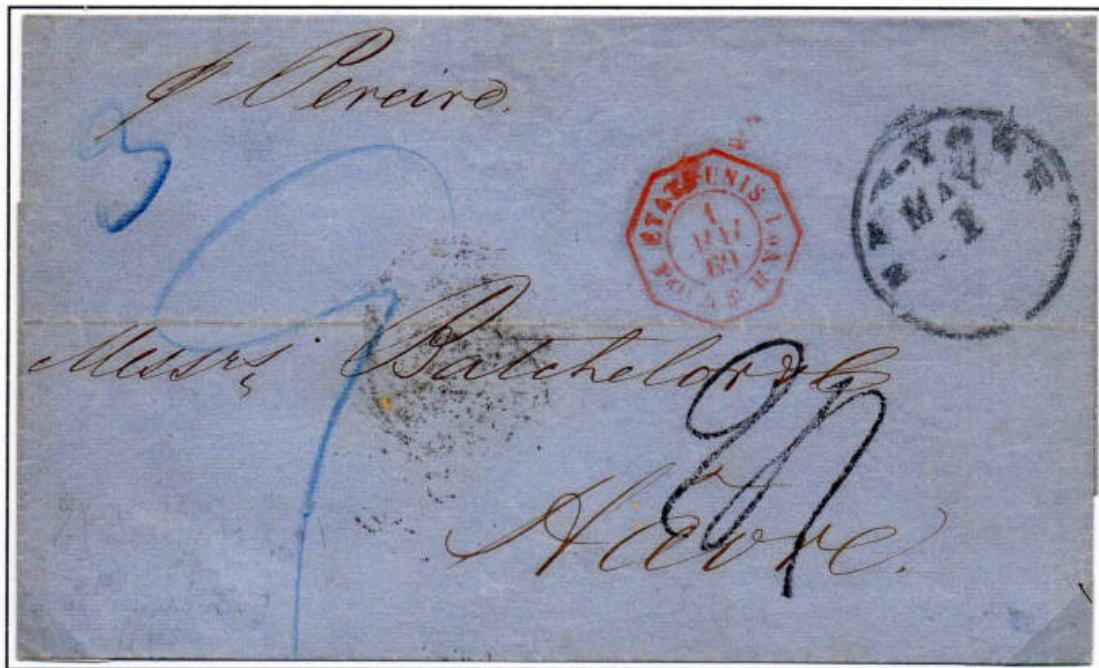 p Pereire.
3
ETATS-UNIS
1
MAI
69
NEW-YORK
MAY
1
Messrs Batchelor & C
Havre.